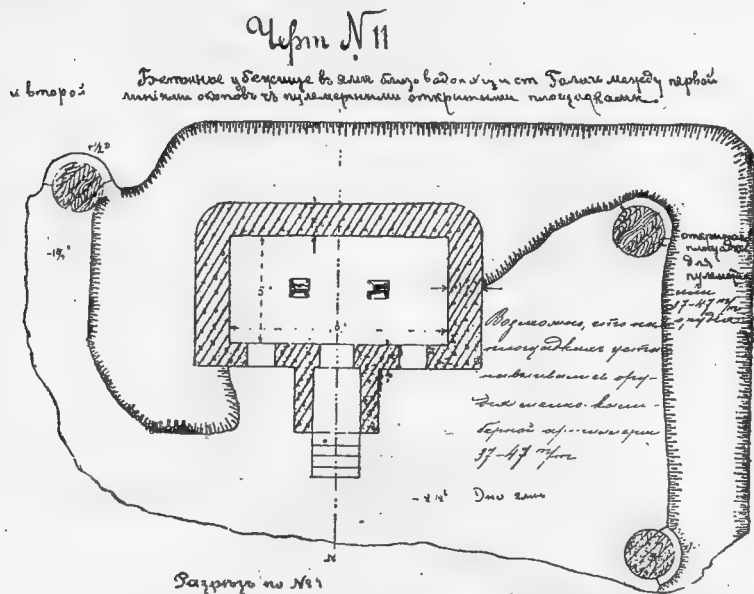 Черт N 11
Бетонное убежище в яме близ водокач и ст Галич между первой
и второй линиями окопов съ пулеметными открытыми площадками.
+½°
открытая
площадка
для
пулемета
или
37-47 m/m
орудия
5
6
Возможно, что на
площадках уста
навливались ору-
дия мелко-кали-
берной артиллерии
37-47 m/m
- 2 ½° Дно ямы
N
Разрезъ по №1